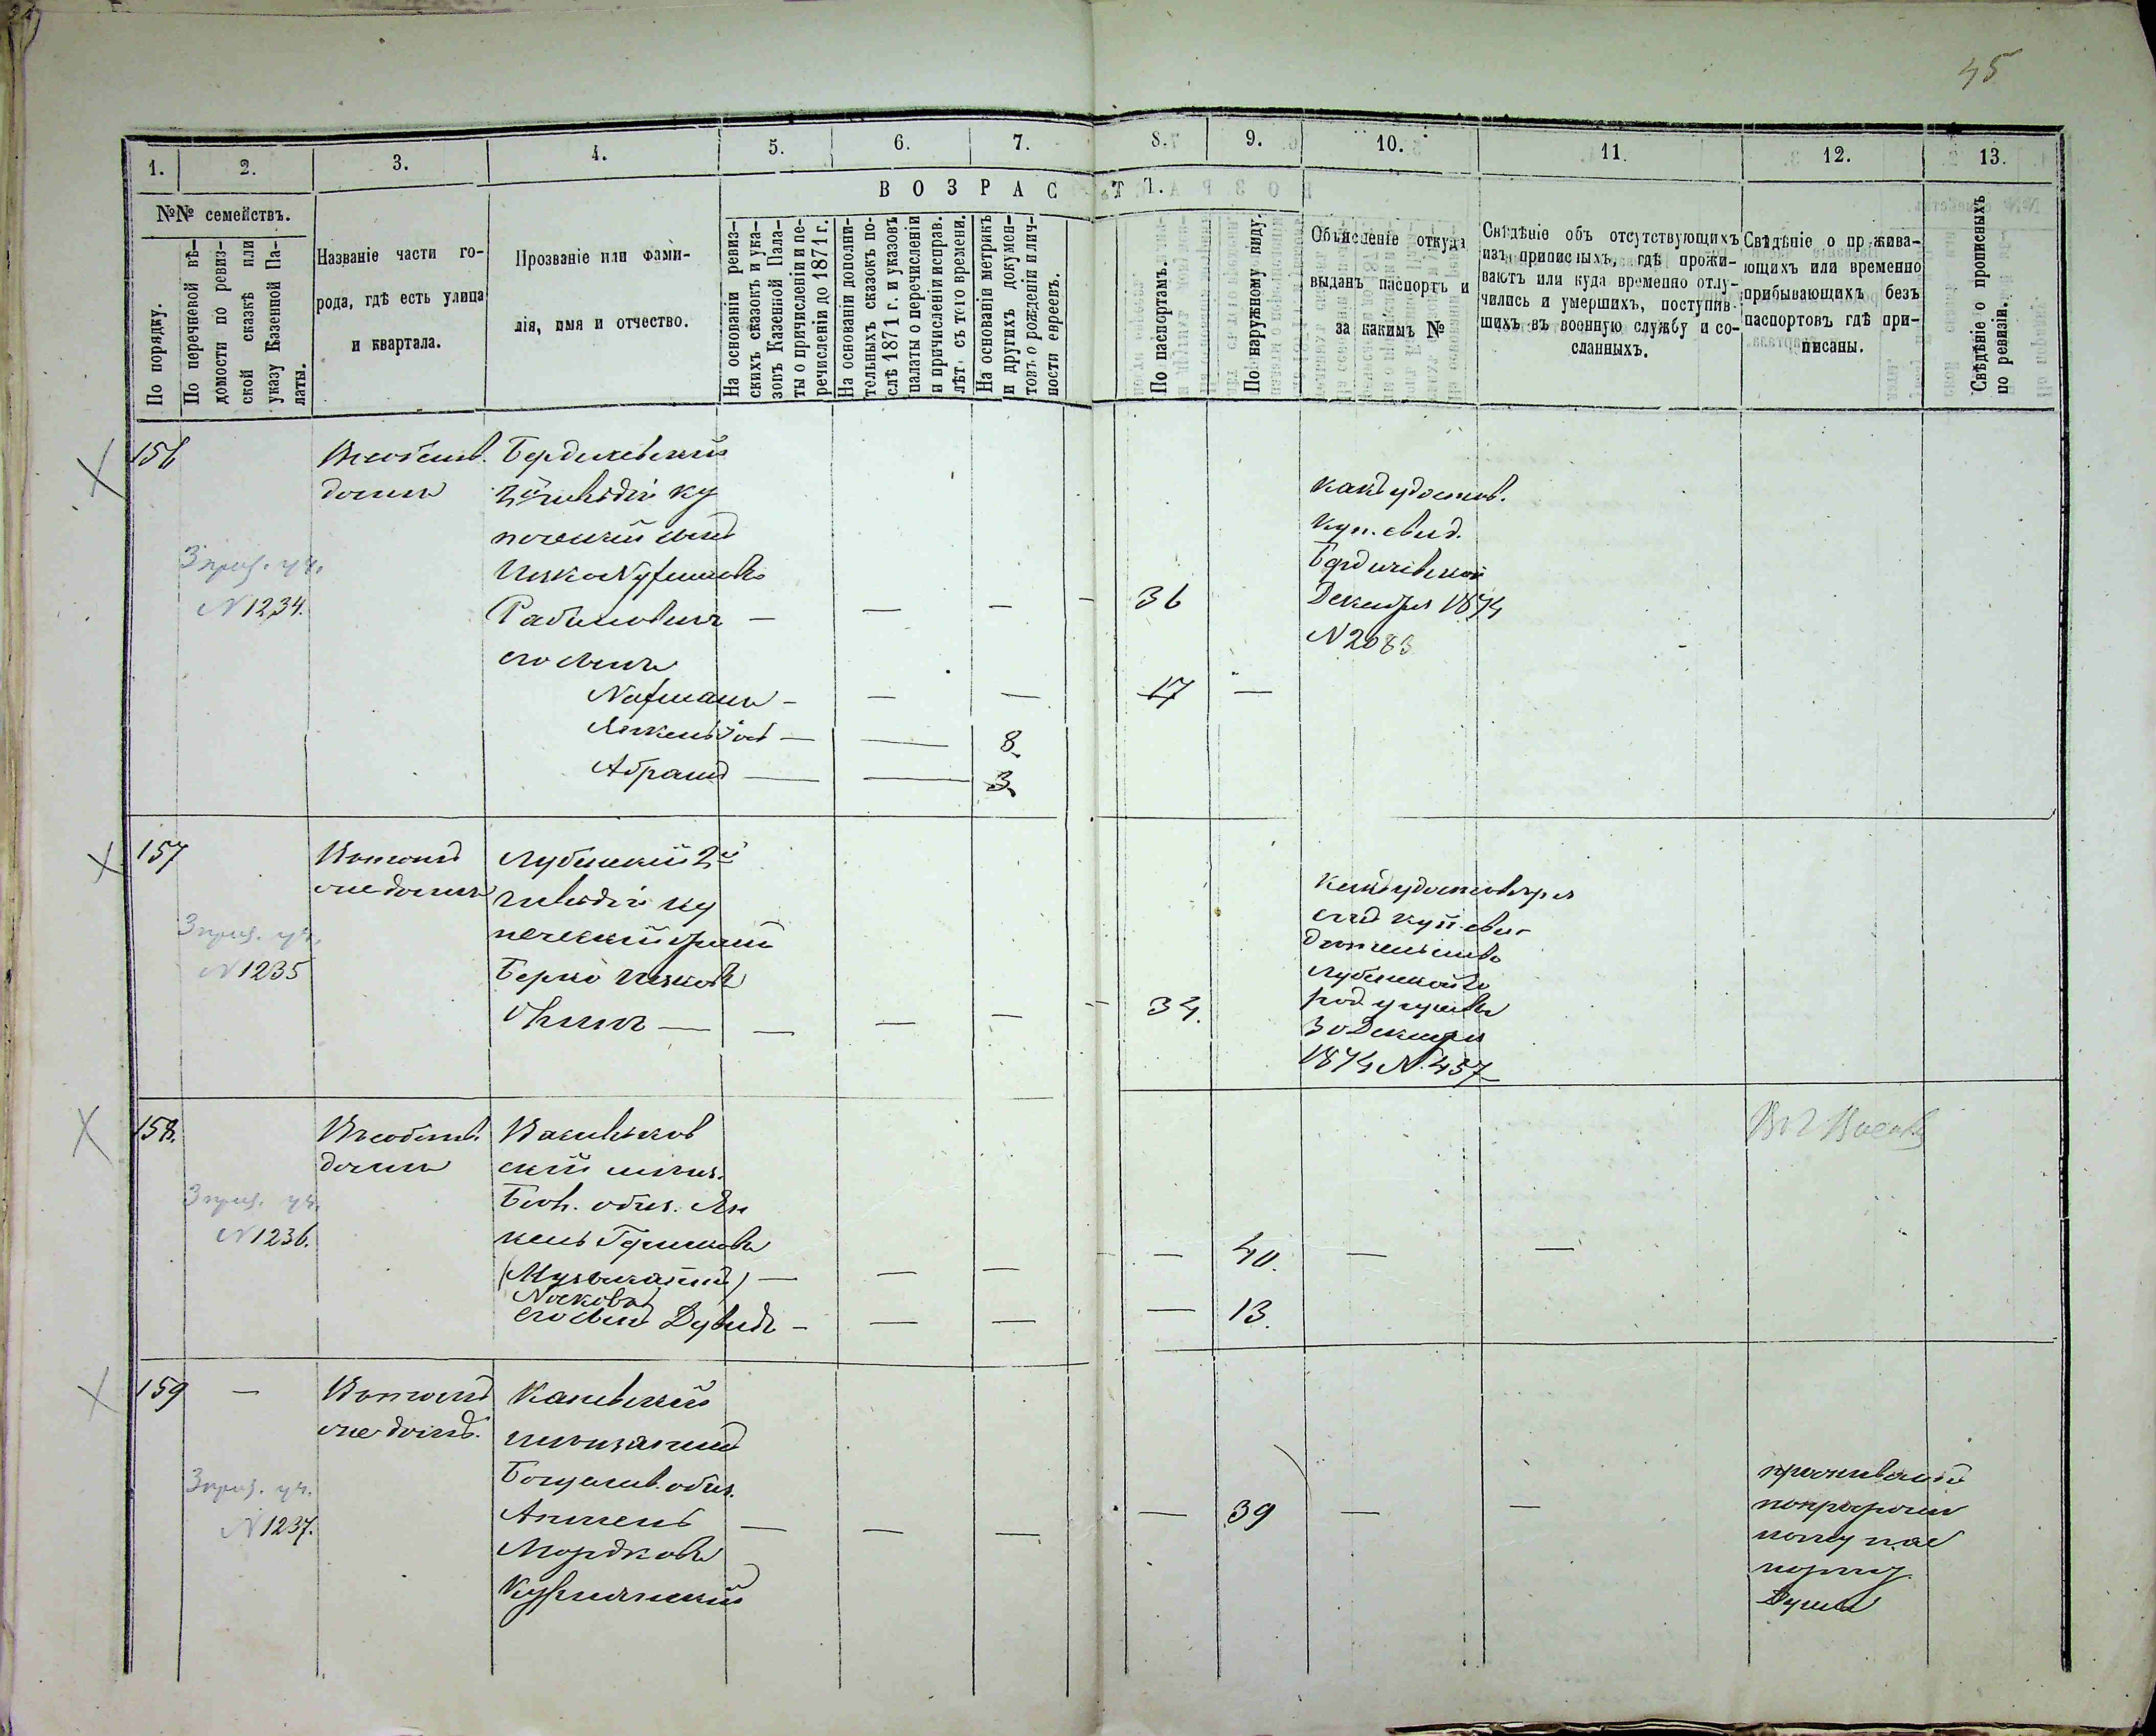 45
1. 2. 3. 4. 5. 6. 7. 8. 9. 10. 11. 12. 13.
ВОЗРАСТЪ.
№№ семействъ.
По порядку.
По перечневой вѣ-
домости по ревиз-
ской сказкѣ или
указу Казенной Па-
латы.
Названіе части го-
рода, гдѣ есть улица
и квартала.
Прозваніе или фами-
лія, имя и отчество.
На основаніи ревиз-
скихъ сказокъ и ука-
зовъ Казенной Пала-
ты о причисленіи и пе-
речисленіи до 1871 г.
На основаніи дополни-
тельныхъ сказокъ по-
слѣ 1871 г. и указовъ
палаты о перечисленіи
и причисленіи исправ.
лѣт. съ того времени.
На основаніи метрикъ
и другихъ докумен-
товъ о рожденіи и лич-
ности евреевъ.
По паспортамъ.
По наружному виду.
Объясненіе откуда
выданъ паспортъ и
за какимъ №
Свѣдѣніе объ отсутствующихъ
изъ приписныхъ, гдѣ прожи-
ваютъ или куда временно отлу-
чились и умершихъ, поступив-
шихъ въ военную службу и со-
сланныхъ.
Свѣдѣніе о прожива-
ющихъ или временно
прибывающихъ безъ
паспортовъ гдѣ при-
писаны.
Свѣдѣніе о прописныхъ
по ревизіи.
156
3 приз. уч.
N 1234.
Въ собств.
домѣ
Бердичевскій
2й гильдіи ку
печескій сынъ
Ицко Нухимовъ
Рабиновичъ —
его сынъ
Нафманъ —
Янкель
Абрамъ —
8
3
36
17
Какъ удостов.
куп. свид.
Бердичевской
Декабря 1874
N 2083
157
3 приз. уч.
N 1235
Въ томъ
же домѣ
Лубенскій 2й
гильдіи ку
печескій братъ
Берко Ицковъ
34.
Какъ удостовѣря
куп. сви
дѣтельство
Лубенской Го
род. управы
30 Декабря
1874 N 457
158.
3 приз. уч.
N 1236.
Въ собств.
домѣ
Васильков
скій мѣщ.
общ. Ян
кель Гершковъ
его сынъ Дувидъ —
40.
13.
159 —
3 приз. уч.
N 1237.
Въ томъ
же домѣ.
Каневскій
мѣщанинъ
Богуслав. общ.
Аншель
Мордковъ
39
паспорту